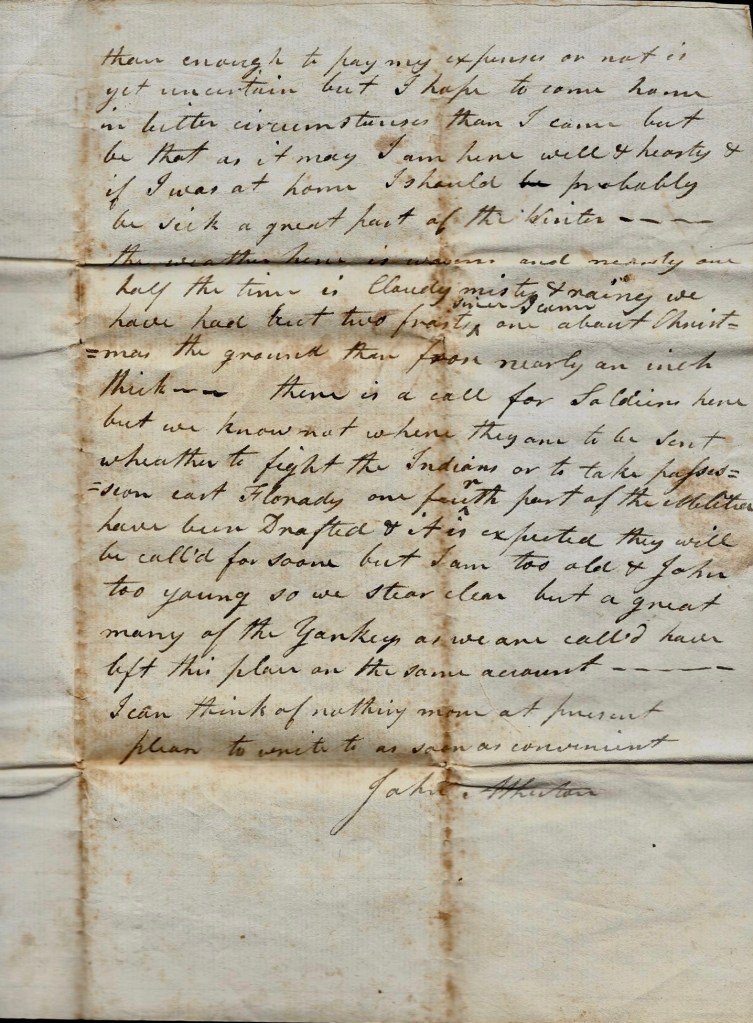 than enough to pay my expenses or not is
yet uncertain but I hope to come home
in better circumstanses than I came but
be that as it may I am here well & hearty &
if I was at home I should be probably
be sick a great part of the Winter ----
the weather here is warm and nearly one
half the time is Cloudy misty & rainy we
have had but two frosts since I came one about Christ=
=mas the ground than frose nearly an inch
thick -- there is a call for Soldiers here
but we know not where they are to be sent
wheather to fight the Indians or to take posses=
=sion east Florady one fourth part of the Militia
have been Drafted & it is expected they will
be call'd for soone but I am too old & John
too young so we stear clear but a great
many of the Yankeys as we are call'd have
left this place on the same account ----
I can think of nothing more at present
please to write to as soon as convenient
John Atherton